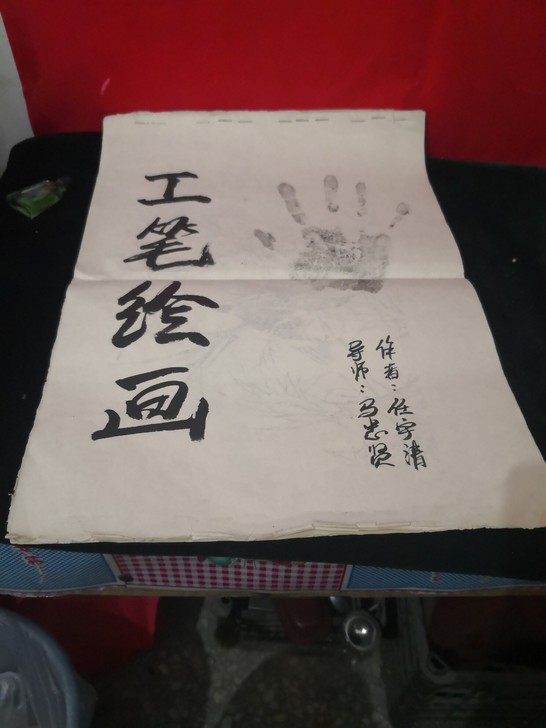 工笔绘画
作者：任宇清
导师：马忠贤